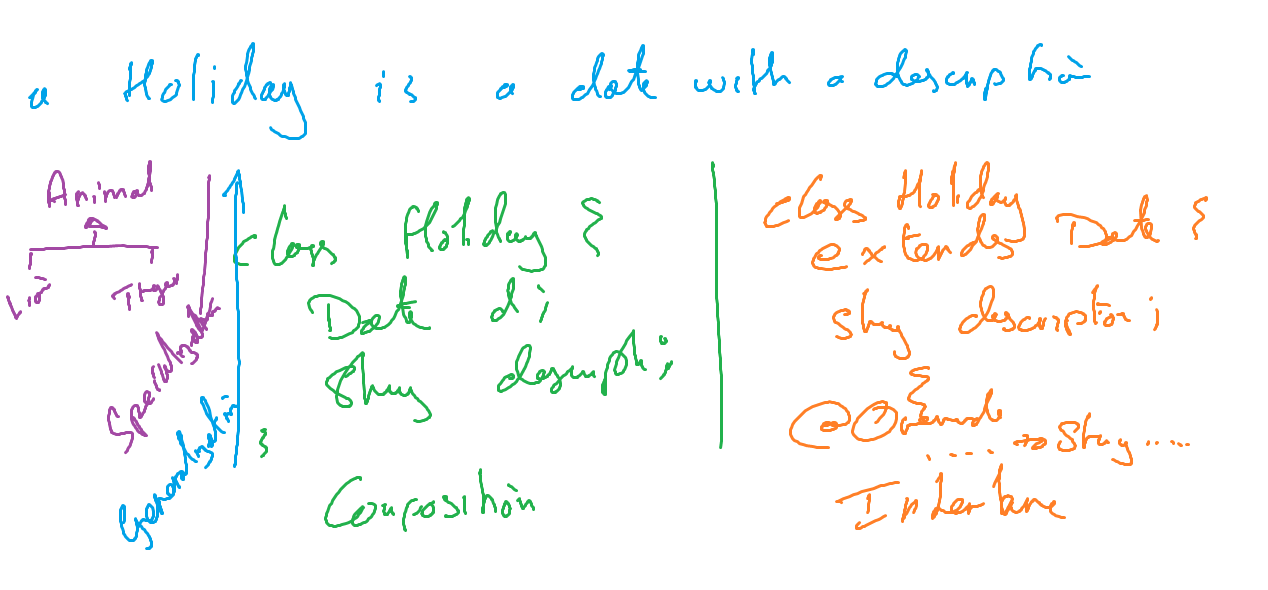 a Holiday is a date with a description
Animal
Lion Tiger
Specialization
Generalization
class Holiday {
Date d;
String descripti;
}
Composition
class Holiday
extendes Date {
String description;
@Override
.... toString .....